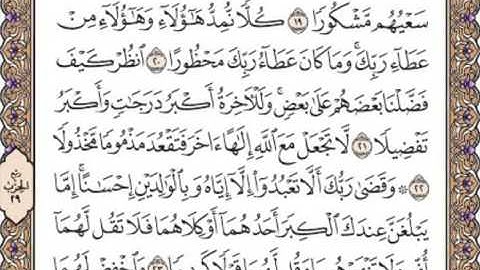 سَعْيُهُم مَّشْكُورًا ١٩ كُلًّا نُّمِدُّ هَٰٓؤُلَآءِ وَهَٰٓؤُلَآءِ مِنْ
عَطَآءِ رَبِّكَ ۚ وَمَا كَانَ عَطَآءُ رَبِّكَ مَحْظُورًا ٢٠ ٱنظُرْ كَيْفَ
فَضَّلْنَا بَعْضَهُمْ عَلَىٰ بَعْضٍ ۚ وَلَلْءَاخِرَةُ أَكْبَرُ دَرَجَٰتٍ وَأَكْبَرُ
تَفْضِيلًا ٢١ لَّا تَجْعَلْ مَعَ ٱللَّهِ إِلَٰهًا ءَاخَرَ فَتَقْعُدَ مَذْمُومًا مَّخْذُولًا
٢٢ ۞ وَقَضَىٰ رَبُّكَ أَلَّا تَعْبُدُوٓا۟ إِلَّآ إِيَّاهُ وَبِٱلْوَٰلِدَيْنِ إِحْسَٰنًا ۚ إِمَّا
يَبْلُغَنَّ عِندَكَ ٱلْكِبَرَ أَحَدُهُمَآ أَوْ كِلَاهُمَا فَلَا تَقُل لَّهُمَآ
أُفٍّ وَلَا تَنْهَرْهُمَا وَقُل لَّهُمَا قَوْلًا كَرِيمًا ٢٣ وَٱخْفِضْ لَهُمَا
ربع
الحزب
٢٩